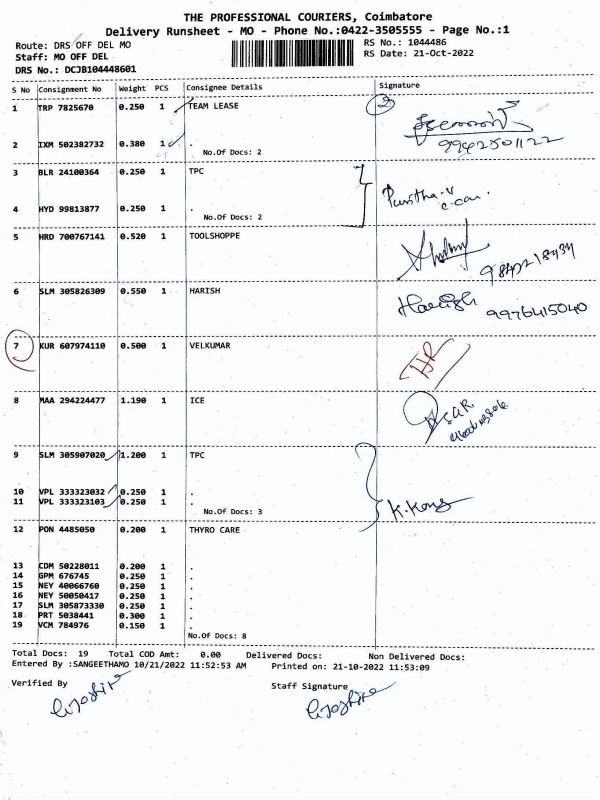 THE PROFESSIONAL COURIERS, Coimbatore
Delivery Runsheet - MO - Phone No.:0422-3505555 - Page No.:1
Route: DRS OFF DEL MO
RS No.: 1044486
Staff: MO OFF DEL
RS Date: 21-Oct-2022
DRS No.: DCJB104448601
S No Consignment No Weight PCS Consignee Details Signature
1 TRP 7825670 0.250 1 TEAM LEASE
2
9942501122
2 IXM 502382732 0.380 1 .
No.Of Docs: 2
3 BLR 24100364 0.250 1 TPC
4 HYD 99813877 0.250 1 .
No.Of Docs: 2
5 HRD 700767141 0.520 1 TOOLSHOPPE
6 SLM 305826309 0.550 1 HARISH
Harish 9976415040
7 KUR 607974110 0.500 1 VELKUMAR
8 MAA 294224477 1.190 1 ICE
9 SLM 305907020 1.200 1 TPC
10 VPL 333323032 0.250 1 .
11 VPL 333323103 0.250 1 .
No.Of Docs: 3
12 PON 4485050 0.200 1 THYRO CARE
13 CDM 50228011 0.200 1 .
14 GPM 676745 0.250 1 .
15 NEY 40066760 0.250 1 .
16 NEY 50050417 0.250 1 .
17 SLM 305873330 0.250 1 .
18 PRT 5038441 0.300 1 .
19 VCM 784976 0.150 1 .
No.Of Docs: 8
Total Docs: 19 Total COD Amt: 0.00 Delivered Docs: Non Delivered Docs:
Entered By :SANGEETHAMO 10/21/2022 11:52:53 AM Printed on: 21-10-2022 11:53:09
Verified By Staff Signature